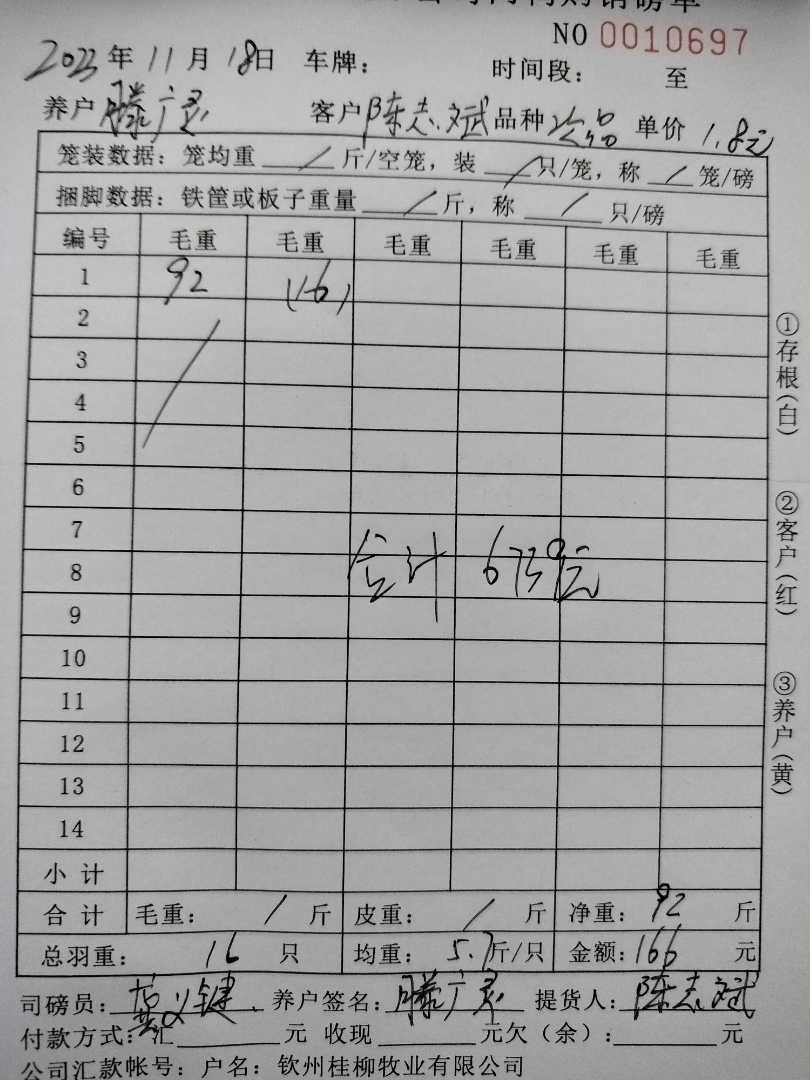 购销磅单
NO 0010697
2023年11月18日 车牌： 时间段： 至
养户 滕广灵 客户 陈志斌 品种 次品 单价 1.8元
笼装数据：笼均重 / 斤/空笼，装 / 只/笼，称 / 笼/磅
捆脚数据：铁筐或板子重量 / 斤，称 / 只/磅
编号 毛重 毛重 毛重 毛重 毛重 毛重
1 92 (16)
2
3
4
5
6
7
8 合计 6739元
9
10
11
12
13
14
小计
合计 毛重： / 斤 皮重： / 斤 净重：92 斤
总羽重： 16 只 均重： 5.7斤/只 金额：166 元
司磅员： 义键 养户签名：滕广灵 提货人：陈志斌
付款方式：汇 元 收现 元欠（余）： 元
公司汇款帐号：户名：钦州桂柳牧业有限公司
①存根(白)
②客户(红)
③养户(黄)